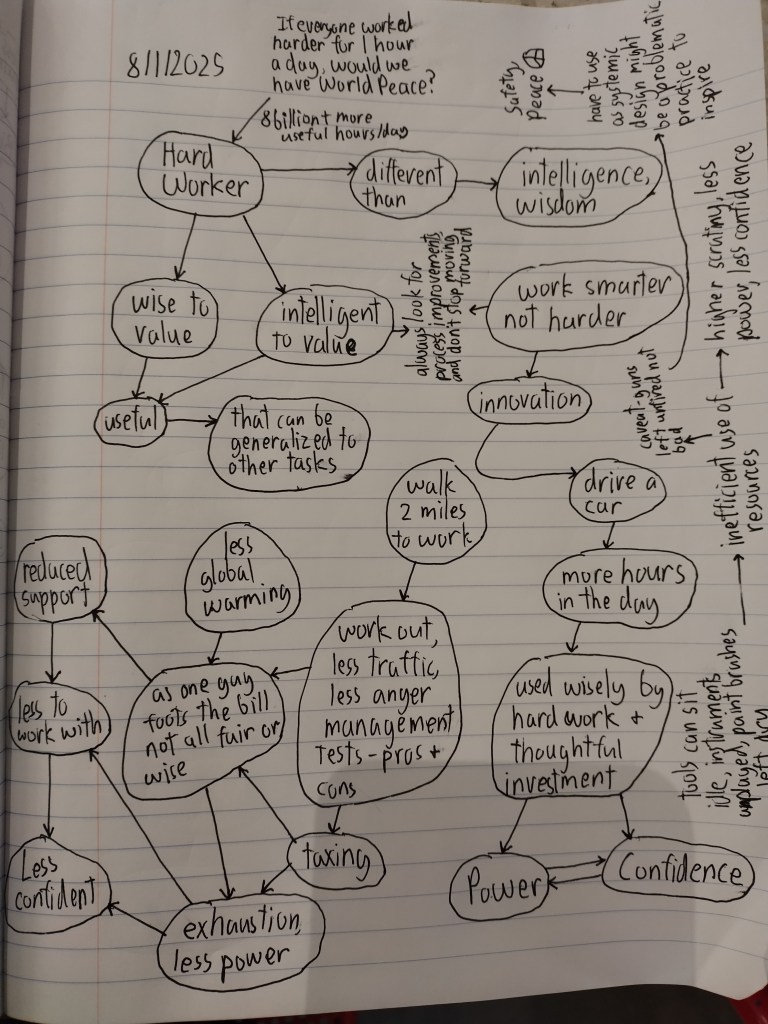 8/1/2025
If everyone worked
harder for 1 hour
a day, would we
have World Peace?
8 billion+ more
useful hours/day
Safety,
Peace
have to use
as systemic
design might
be a problematic
practice to
inspire
Hard
Worker
different
than
intelligence,
wisdom
wise to
value
intelligent
to value
always look for
process improvements
and don't stop moving
forward
work smarter
not harder
higher scrutiny, less
power, less confidence
useful
that can be
generalized to
other tasks
innovation
caveat-guns
left unfired not
bad
inefficient use of
resources
walk
2 miles
to work
drive a
car
reduced
support
less
global
warming
more hours
in the day
work out,
less traffic,
less anger
management
tests - pros +
cons
less to
work with
as one guy
foots the bill
not all fair or
wise
used wisely by
hard work +
thoughtful
investment
tools can sit
idle, instruments
unplayed, paint brushes
left dry
taxing
Less
confident
Power
Confidence
exhaustion,
less power